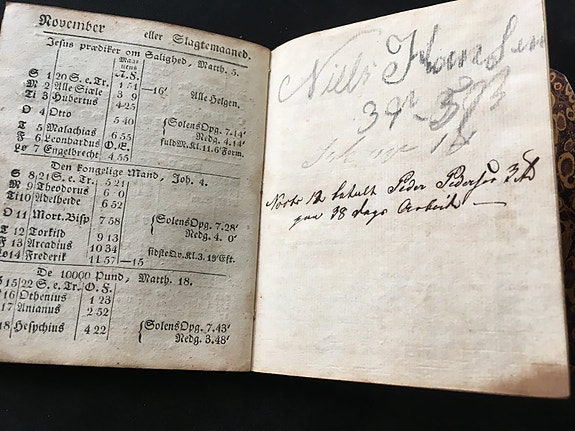 November eller Slagtemaaned.
Jesus prædiker om Salighed, Matth. 5.
Maanens
A. F.
S 1 20 S. e. Tr. 1 51 —16°
M 2 Alle Siæle 3 9 Alle Helgen.
Ti 3 Hubertus 4 25
O 4 Otto 5 40
SolensOpg. 7.14'
T 5 Malachias 6 55 Nedg. 4.14'
F 6 Leonhardus O. E. fuldM. Kl. 11.6' Form.
Lø 7 Engelbrecht 4 55
Den kongelige Mand, Joh. 4.
S 8 21 S. e. Tr. 5 21
M 9 Theodorus 6 0
Ti 10 Adelheide 6 52
O 11 Mort. Bisp 7 58 SolensOpg. 7.28'
Nedg. 4. 0'
T 12 Torkild 9 13
F 13 Arcadius 10 34 sidsteQv. Kl. 3. 19' Eft.
Lø 14 Frederik 11 57 —15
De 10000 Pund, Matth. 18.
S 15 22 S. e. Tr. O. F.
16 Othenius 1 23
17 Anianus 2 52
18 Hesychius 4 22 SolensOpg. 7.43'
Nedg. 3.48'
Niels Hansen
12 betalt Peder Pedersen 3
38 dags Arbeid —